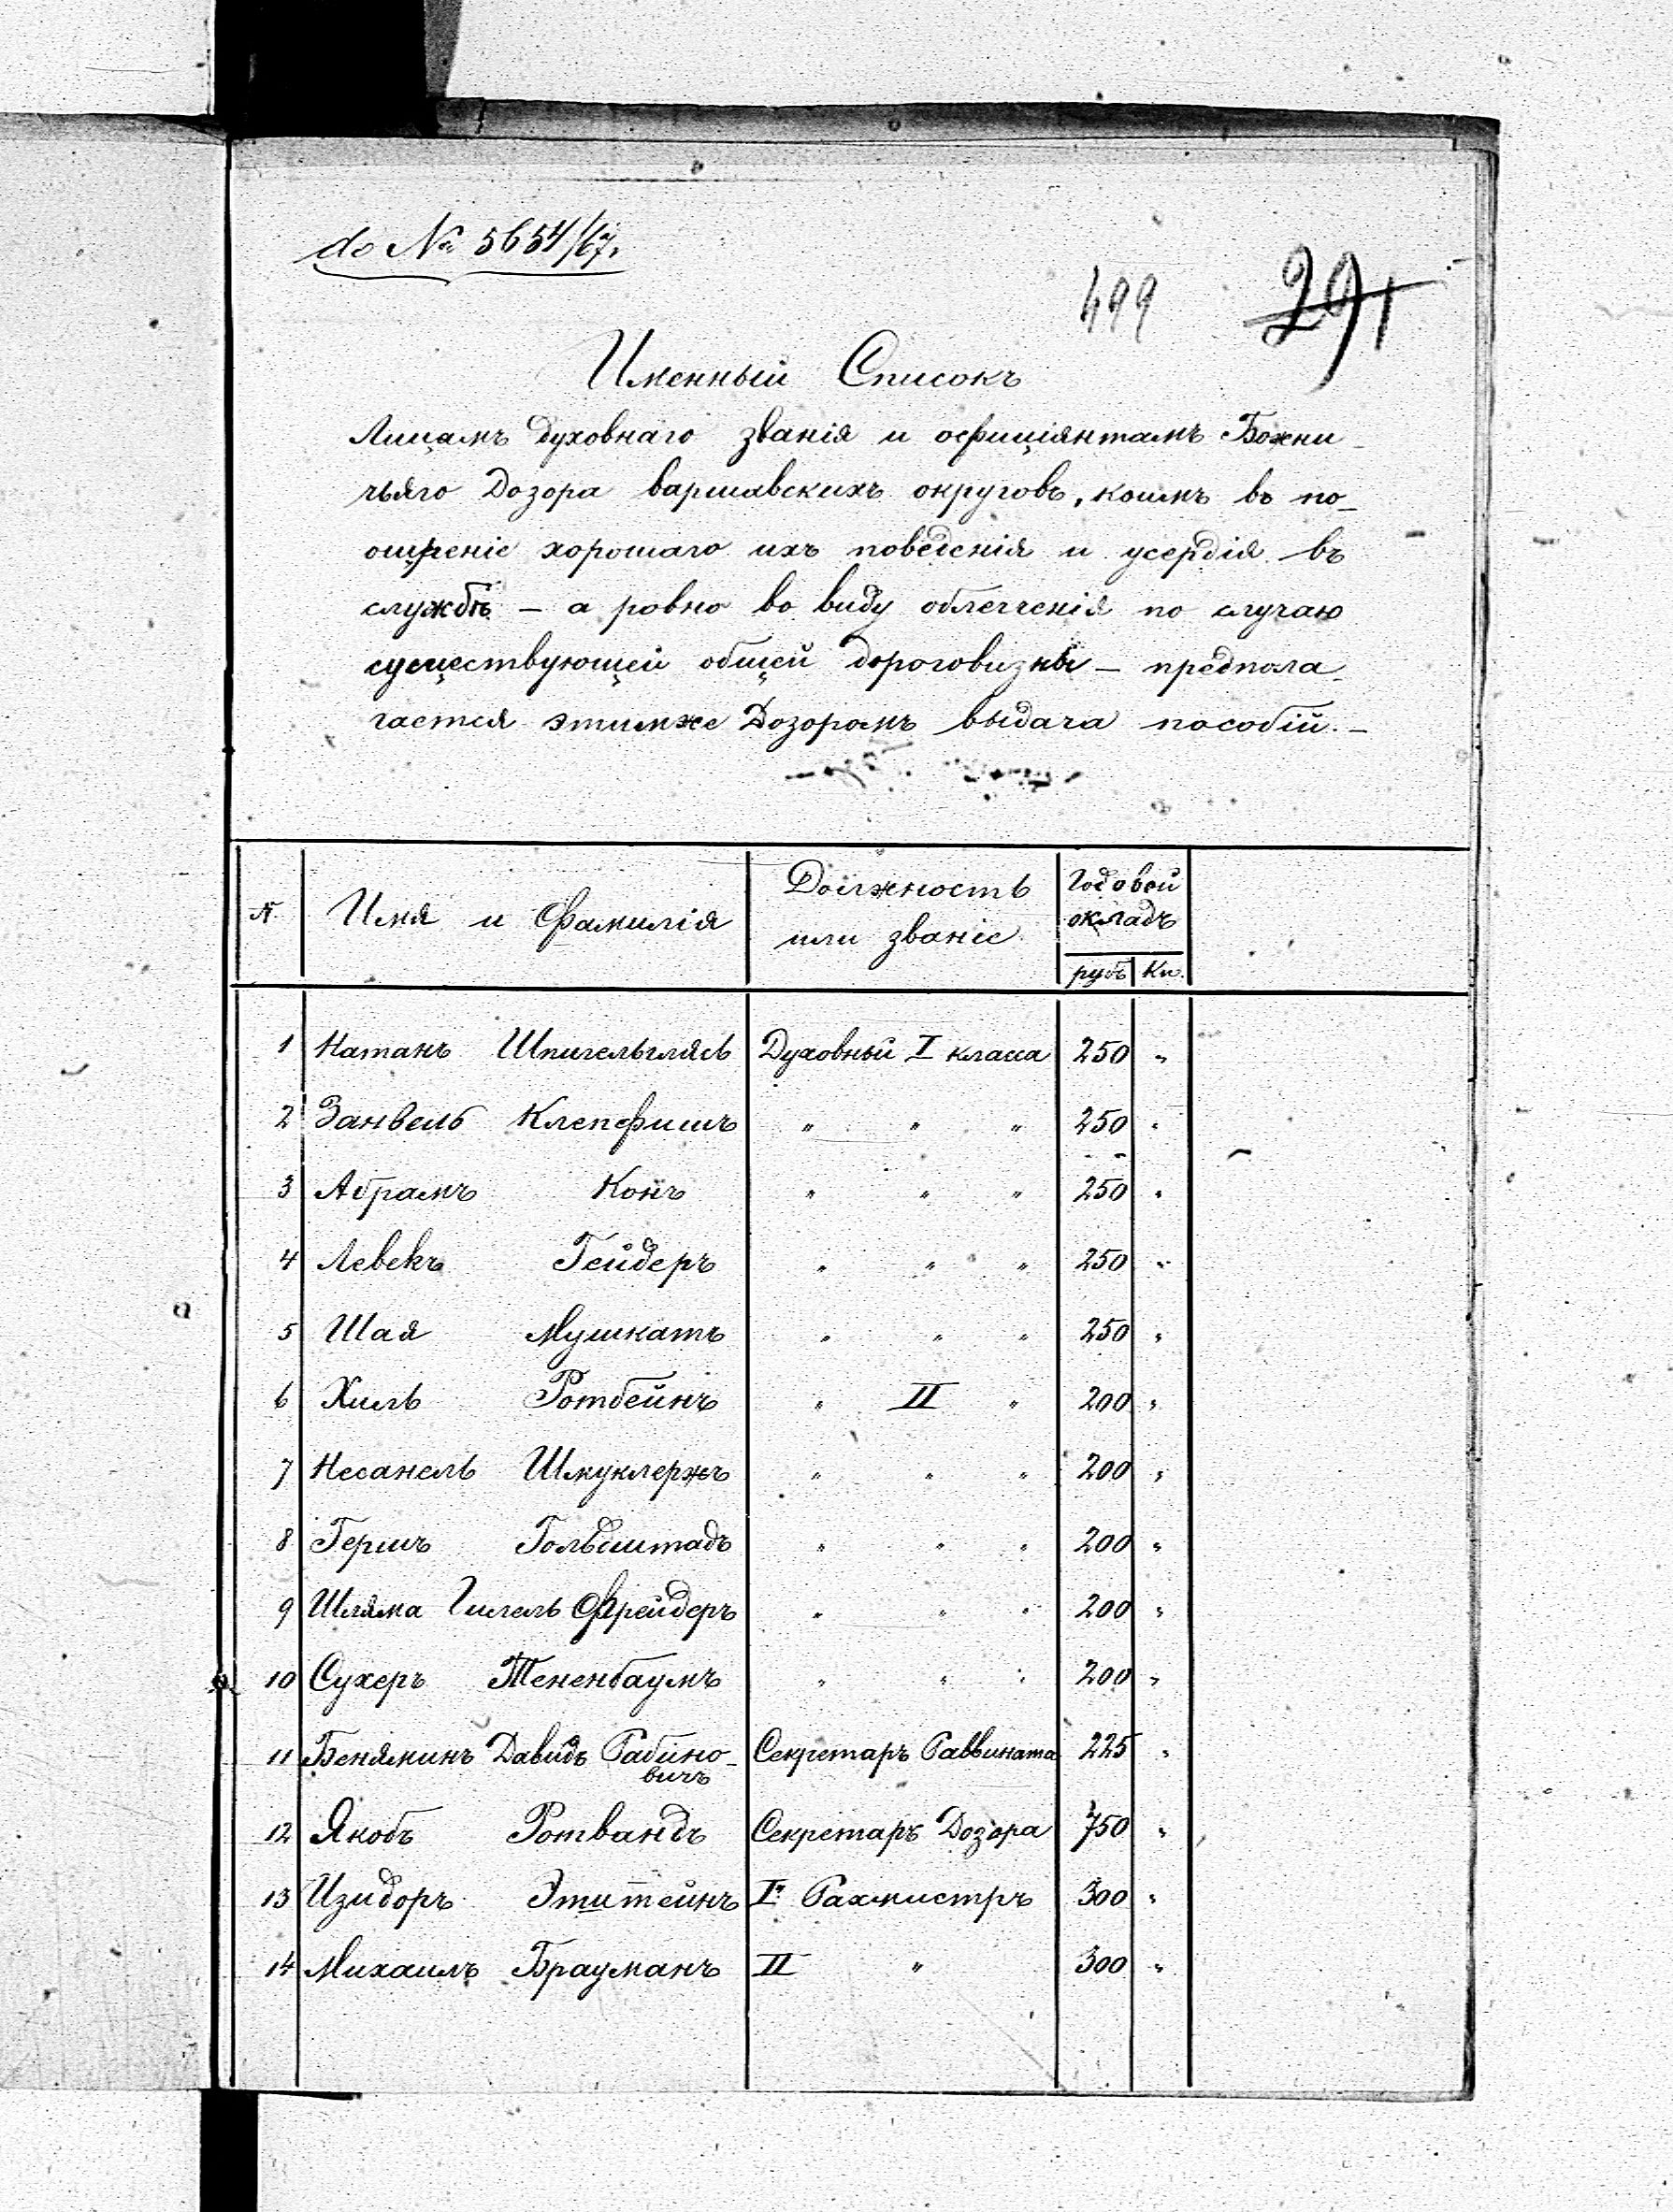 do № 5654/67.
499 291
Именный Списокъ
Лицамъ Духовнаго званія и оффиціянтамъ Божни-
чьяго Дозора варшавскихъ округовъ, коимъ въ по-
ощреніе хорошаго ихъ поведенія и усердія въ
службѣ – а ровно во виду облегченія по случаю
существующей общей дороговизны – предпола-
гается этимже Дозоромъ выдача пособій. –
№ Имя и Фамилія Должность или званіе Годовой окладъ
рубъ Кп.
1 Натанъ Шпигельглясъ Духовный I класса 250 "
2 Занвель Клепфишъ " " " 250 "
3 Абрамъ Конъ " " " 250 "
4 Левекъ Гейдеръ " " " 250 "
5 Шая Мушкатъ " " " 250 "
6 Хиль Ротбейнъ " II " 200 "
7 Несанель Шмуклержъ " " " 200 "
8 Гершъ Гольдштадъ " " " 200 "
9 Шляма Гилель Фрейдеръ " " " 200 "
10 Сухеръ Тененбаумъ " " " 200 "
11 Беняминъ Давидъ Рабино- Секретаръ Раввината 225 "
вичъ
12 Якобъ Ротвандъ Секретаръ Дозора 750 "
13 Изидоръ Этштейнъ Iй Рахмистръ 300 "
14 Михаилъ Брауманъ II " 300 "